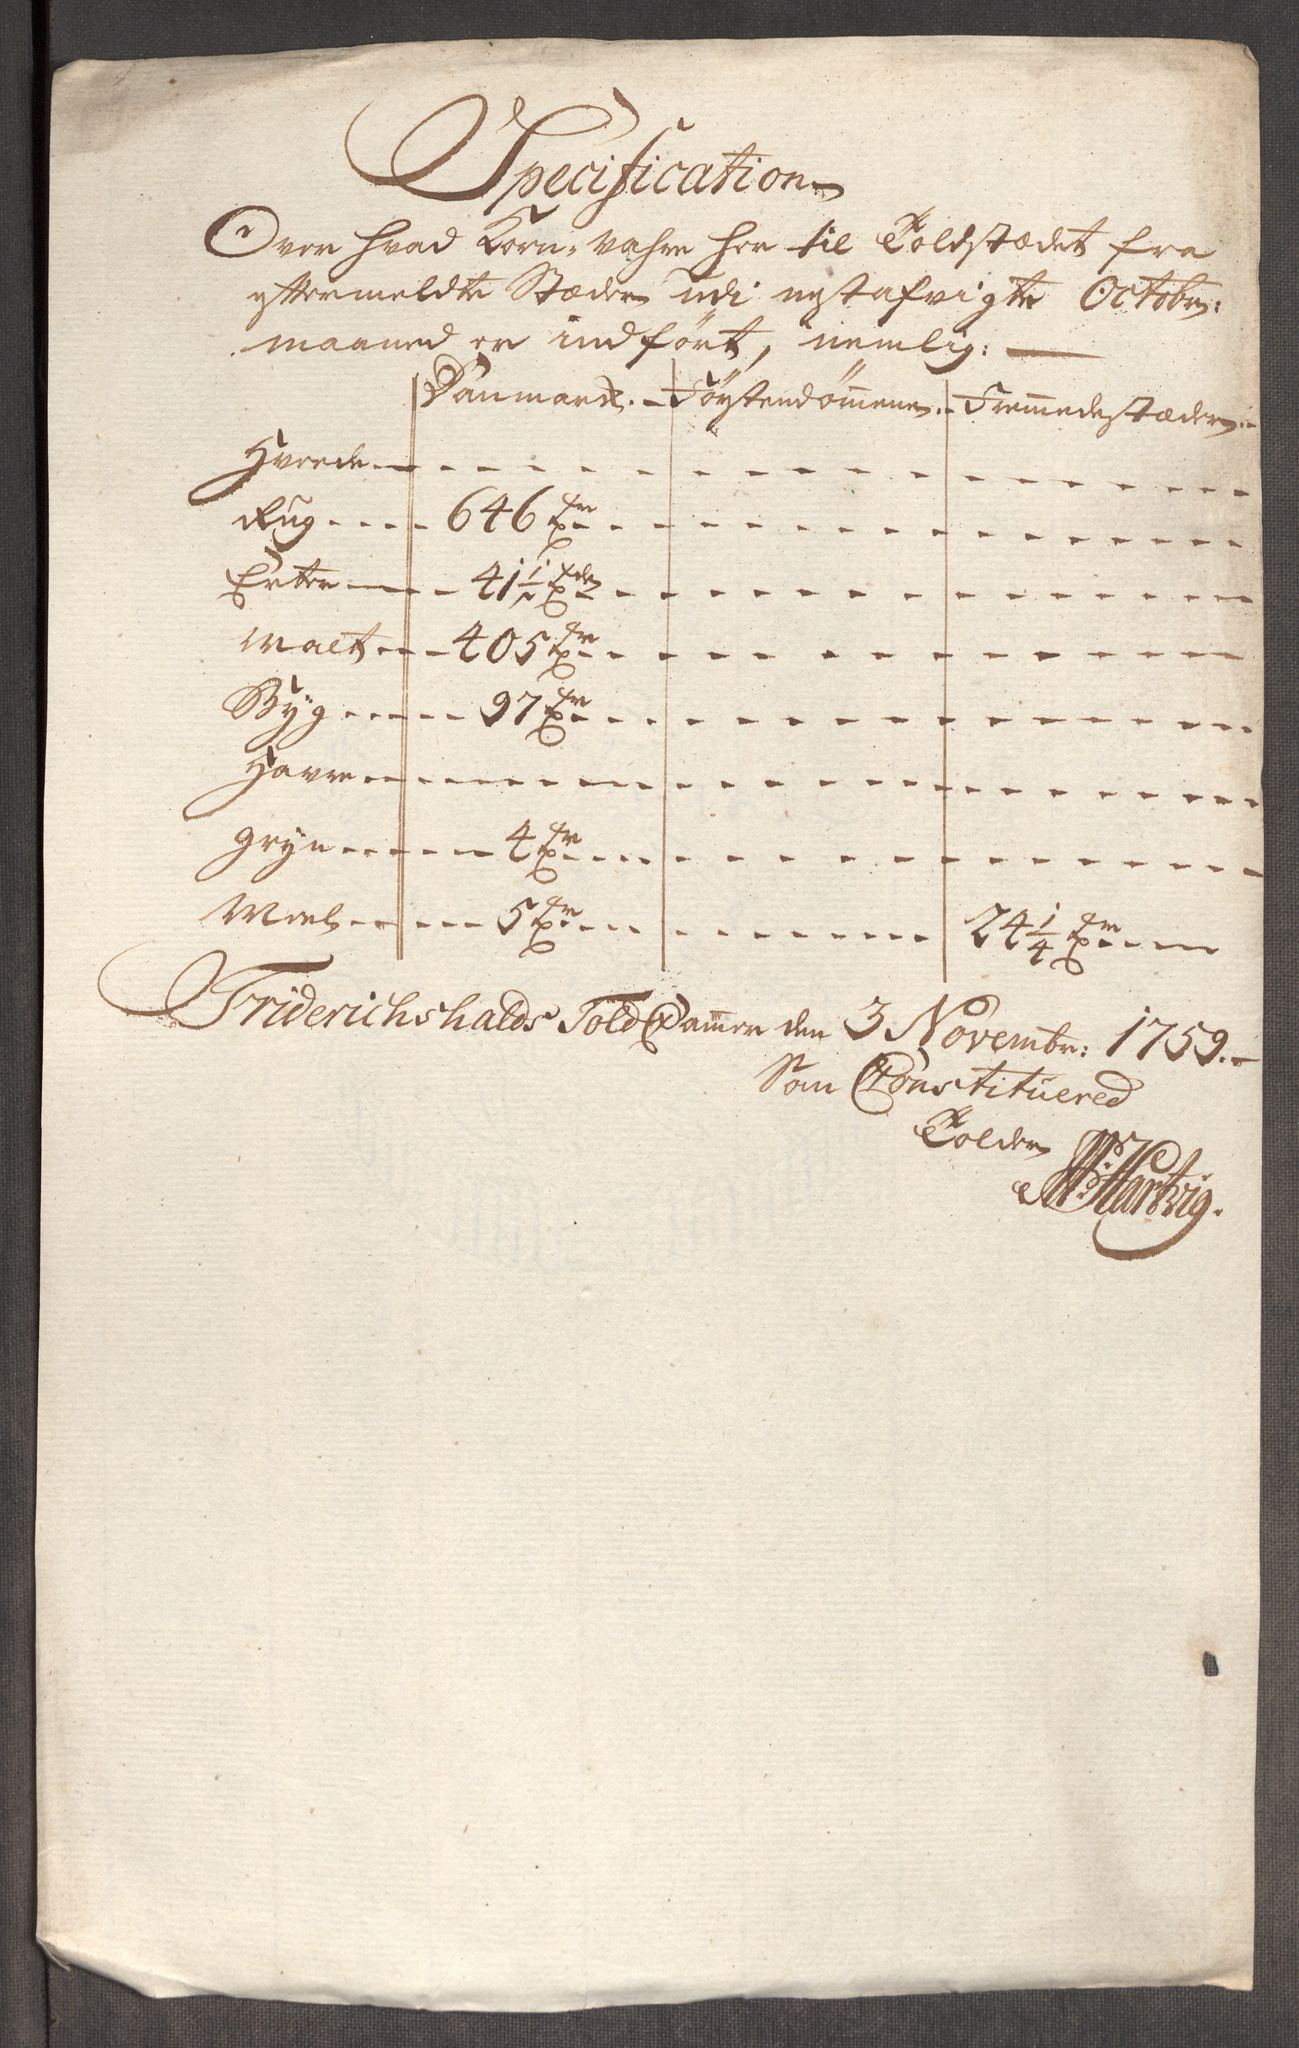 Specification
Over hvad Korn-vahre her til Toldstædet fra
eftermeldte Stæder udi nestafvigte Octobr:
maaned er indført, nemlig:
Danmark. Förstendömmene. Fremmedestæder.
Hvede
Rug 646 Tr
Erter 41 1/2 Tdr
Malt 405 Tr
Byg 97 Tr
Havre
Gryn 4 Tr
Meel 5 Tr 24 1/4 Tr
Friderichshalds Told Cammer den 3 Novembr: 1759.
Som Constituered
Tolder
Hartvig.